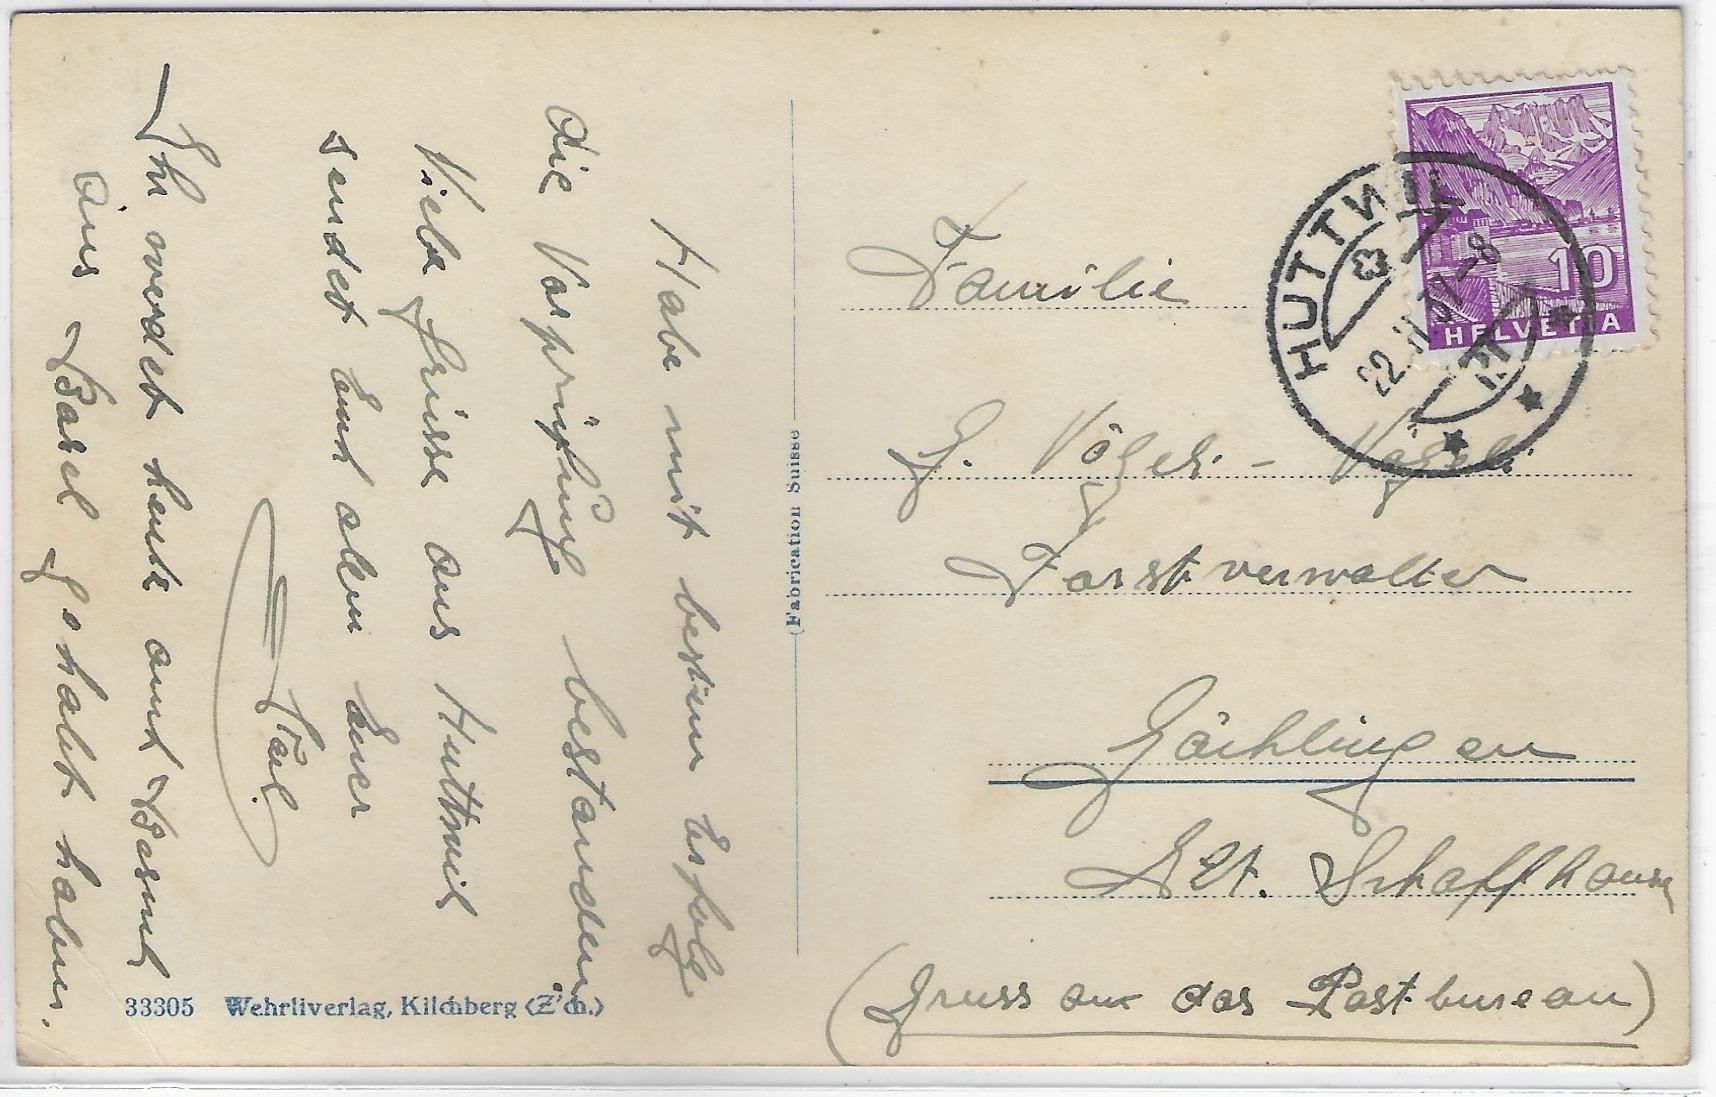 Habe mit bestem Erfolg
die Vorprüfung bestanden
Viele Grüsse aus Huttwil
sendet Euch allen Euer
Paul.
Ihr werdet heute auch Besuch
aus Basel gehabt haben.
33305 Wehrliverlag, Kilchberg (Z'ch.)
(Fabrication Suisse)
HUTTWIL
22. II. 37 - 8
10
HELVETIA
Familie
G. Vögeli - Vögeli
Forstverwalter
Gächlingen
Kt. Schaffhausen
(Gruss an das Postbureau)